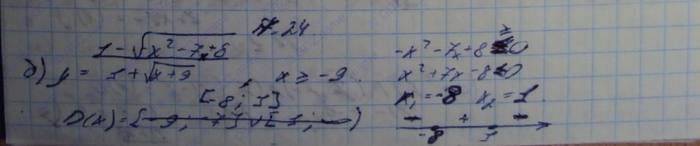 17.24
б) y = (1 - √(x² - 7x + 8)) / (1 + √(x + 9)), x ≥ -9.
[-8; 1]
D(x) = [-9; -7] ∨ [1; ∞)
-x² - 7x + 8 ≥ 0
x² + 7x - 8 ≤ 0
x₁ = -8 x₂ = 1
- + -
-8 1